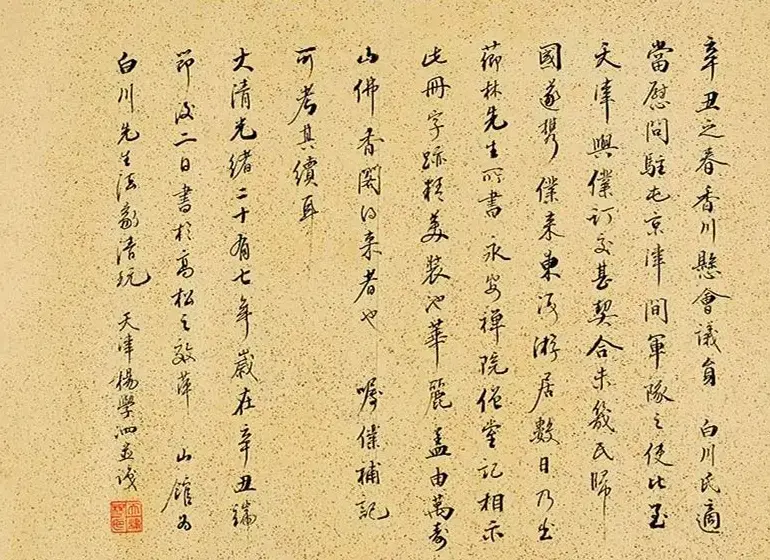 辛丑之春香川縣會議員 白川氏適
當慰問駐屯京津間軍隊之使比至
天津與僕訂交甚契合未幾氏歸
國遂携僕来東同游居數日乃出
薌林先生所書永安禪院僧堂記相示
此冊字跡精美裝池華麗蓋由萬壽
山佛香閣得来者也 囑僕補記
可考其續耳
大清光緒二十有七年歲在辛丑端
節後二日書於高松之 萍山館為
白川先生法家清玩 天津楊學 並識